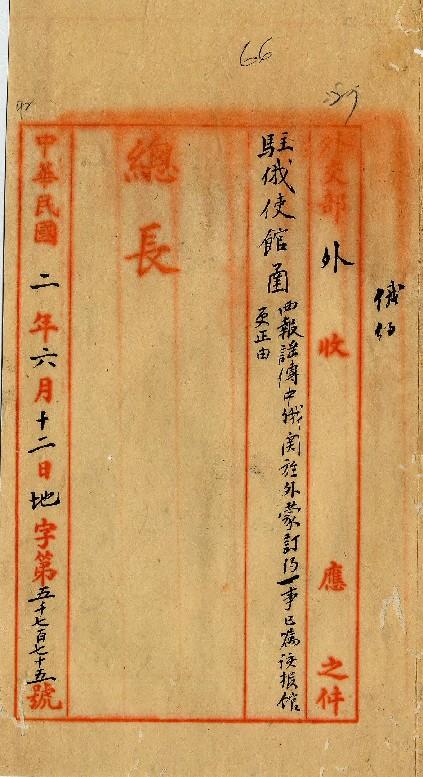 66
俄约
外交部外收應之件
駐俄使館函西報謠傳中俄関於外蒙訂约一事已該报館
更正由
總長
中華民國二年六月十二日地字第五千七百七十五號